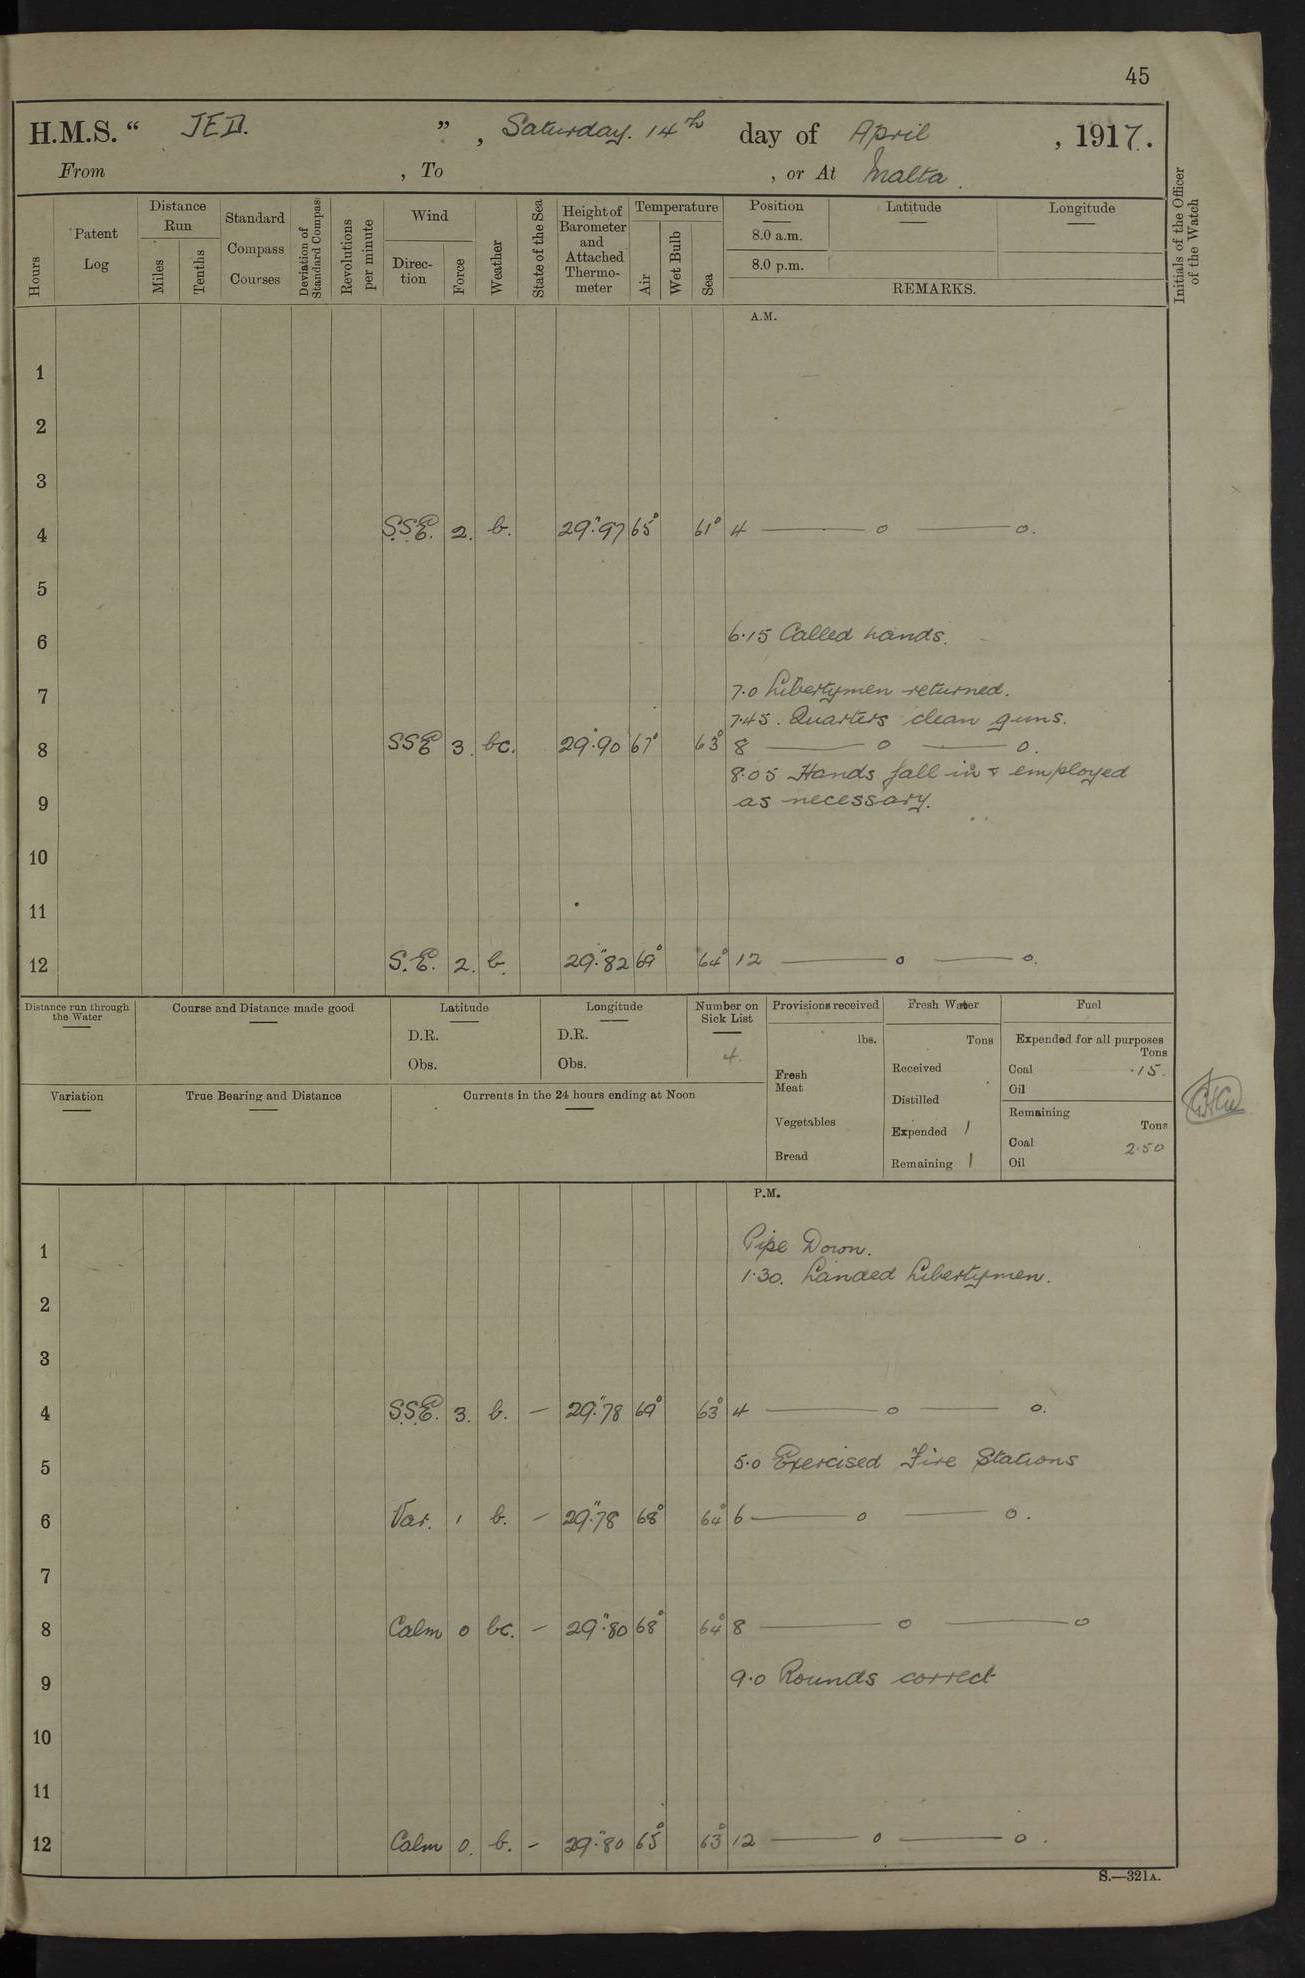 45
H.M.S. “ JED. ” , Saturday. 14th day of April , 1917.
From , To , or At Malta.
Hours
Patent Log
Distance Run
Miles
Tenths
Standard Compass Courses
Deviation of Standard Compass
Revolutions per minute
Wind
Direction
Force
Weather
State of the Sea
Height of Barometer and Attached Thermometer
Temperature
Air
Wet Bulb
Sea
Position
8.0 a.m.
8.0 p.m.
Latitude
Longitude
REMARKS.
Initials of the Officer of the Watch
A.M.
1
2
3
4 S.S.E. 2. b. 29".97 65° 61° 4 —— o —— o.
5
6 6.15 Called hands.
7 7.0 Libertymen returned.
7.45. Quarters clean guns.
8 SSE 3. bc. 29".90 67° 63° 8 —— o —— o.
8.05 Hands fall in & employed
9 as necessary.
10
11
12 S.E. 2. b. 29".82 69° 64° 12 —— o —— o.
Distance run through the Water
Course and Distance made good
Latitude
D.R.
Obs.
Longitude
D.R.
Obs.
Number on Sick List
4.
Provisions received
lbs.
Fresh Meat
Vegetables
Bread
Fresh Water
Tons
Received
Distilled
Expended 1
Remaining 1
Fuel
Expended for all purposes
Tons
Coal .15.
Oil
Remaining
Tons
Coal 2.50
Oil
Variation
True Bearing and Distance
Currents in the 24 hours ending at Noon
P.M.
1 Pipe Down.
1.30. Landed Libertymen.
2
3
4 S.S.E. 3. b. — 29".78 69° 63° 4 —— o —— o.
5 5.0 Exercised Fire Stations
6 Var. 1 b. — 29".78 68° 64° 6 —— o —— o.
7
8 Calm 0 bc. — 29".80 68° 64° 8 —— o —— o
9 9.0 Rounds correct
10
11
12 Calm 0. b. - 29".80 65° 63° 12 —— o —— o.
S.—321A.